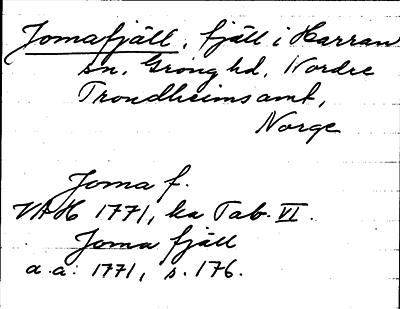 Jomafjäll, fjäll i Harran
sn, Grong hd, Nordre
Trondheims amt,
Norge
Joma f.
VAH 1771, ka Tab. VI.
Joma fjäll
a.a: 1771, s. 176.